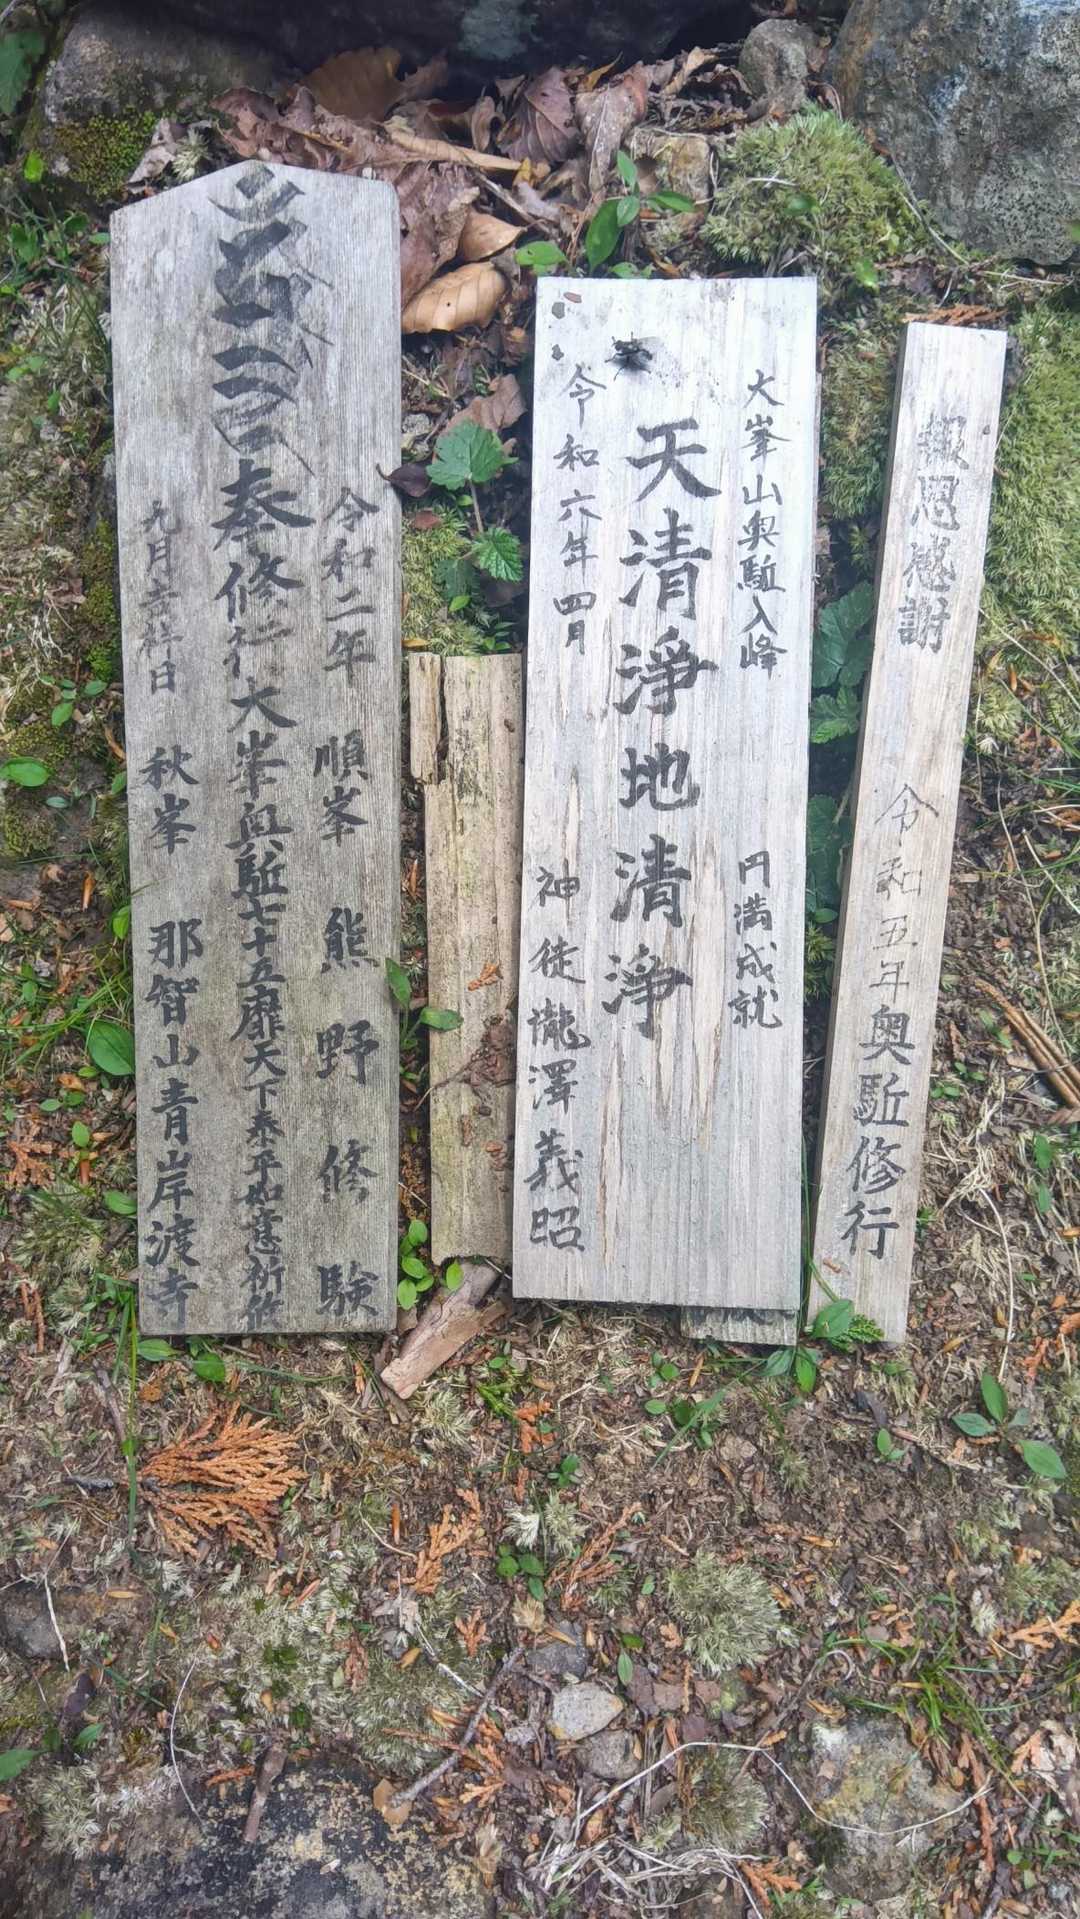 報恩感謝 令和五年奥駈修行
大峯山奥駈入峰 円満成就
天清淨地清淨
令和六年四月 神徒瀧澤義昭
令和二年 順峯 熊野修験
奉修行大峯奥駈七十五靡天下泰平如意祈攸
九月吉祥日 秋峯 那智山青岸渡寺